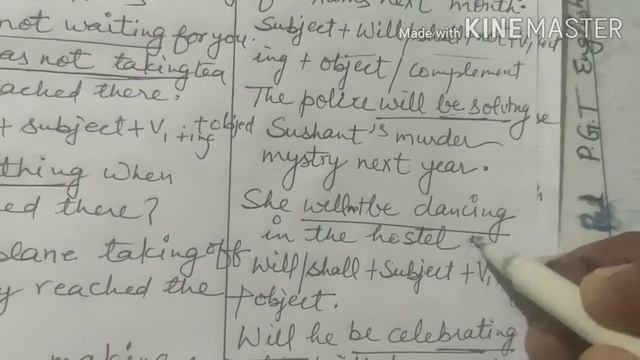 not waiting for you.
as not taking tea
ached there.
+ subject + V1 + ing + object
thing when
ed there?
plane taking off
y reached the
making
next month.
Subject + will/
ing + object / complement
The police will be solving
Sushant's murder
mystry next year.
She will not be dancing
in the hostel
Will/shall + Subject + V1
+ object.
Will he be celebrating
Made with KINEMASTER
P.G.T Eng